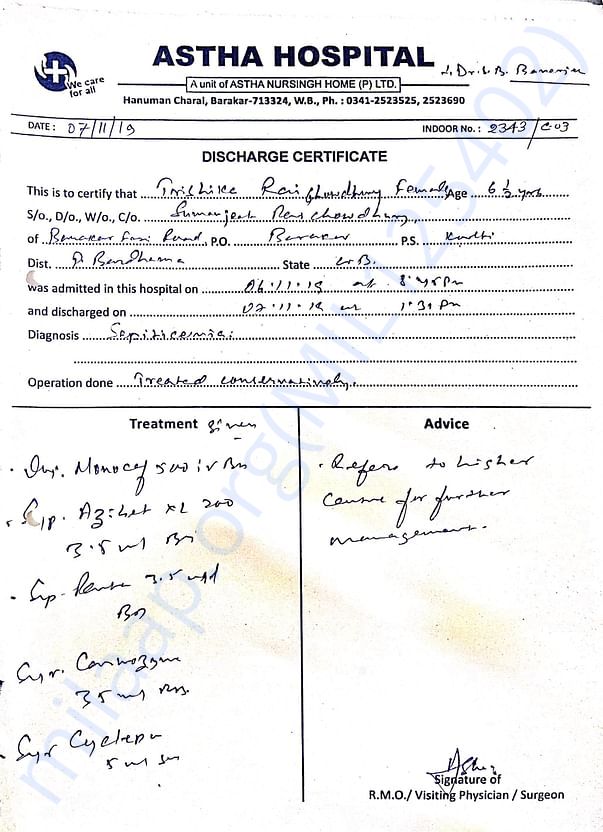 ASTHA HOSPITAL
We care for all
A unit of ASTHA NURSINGH HOME (P) LTD.
Hanuman Charal, Barakar-713324, W.B., Ph. : 0341-2523525, 2523690
DATE : 07/11/19 INDOOR No. : 2343/C-03
DISCHARGE CERTIFICATE
This is to certify that Female Age 6 1/2 yrs
S/o., D/o., W/o., C/o.
of Road, P.O. Barakar P.S. Kulti
Dist. State W.B.
was admitted in this hospital on 06.11.19 at 8:45 Pm
and discharged on 07.11.19 at 1:31 Pm
Diagnosis Septicemia.
Operation done Treated conservatively.
Treatment given
Advice
. Inj. Monocef 500 iv
. Syp. XL 200
3.5 ml
. Syp. 3.5 ml
Syr.
3.5 ml
Syr
5 ml
. Refers to higher
centre for further
management.
Signature of
R.M.O./ Visiting Physician / Surgeon
milaap.org(MIL125402)